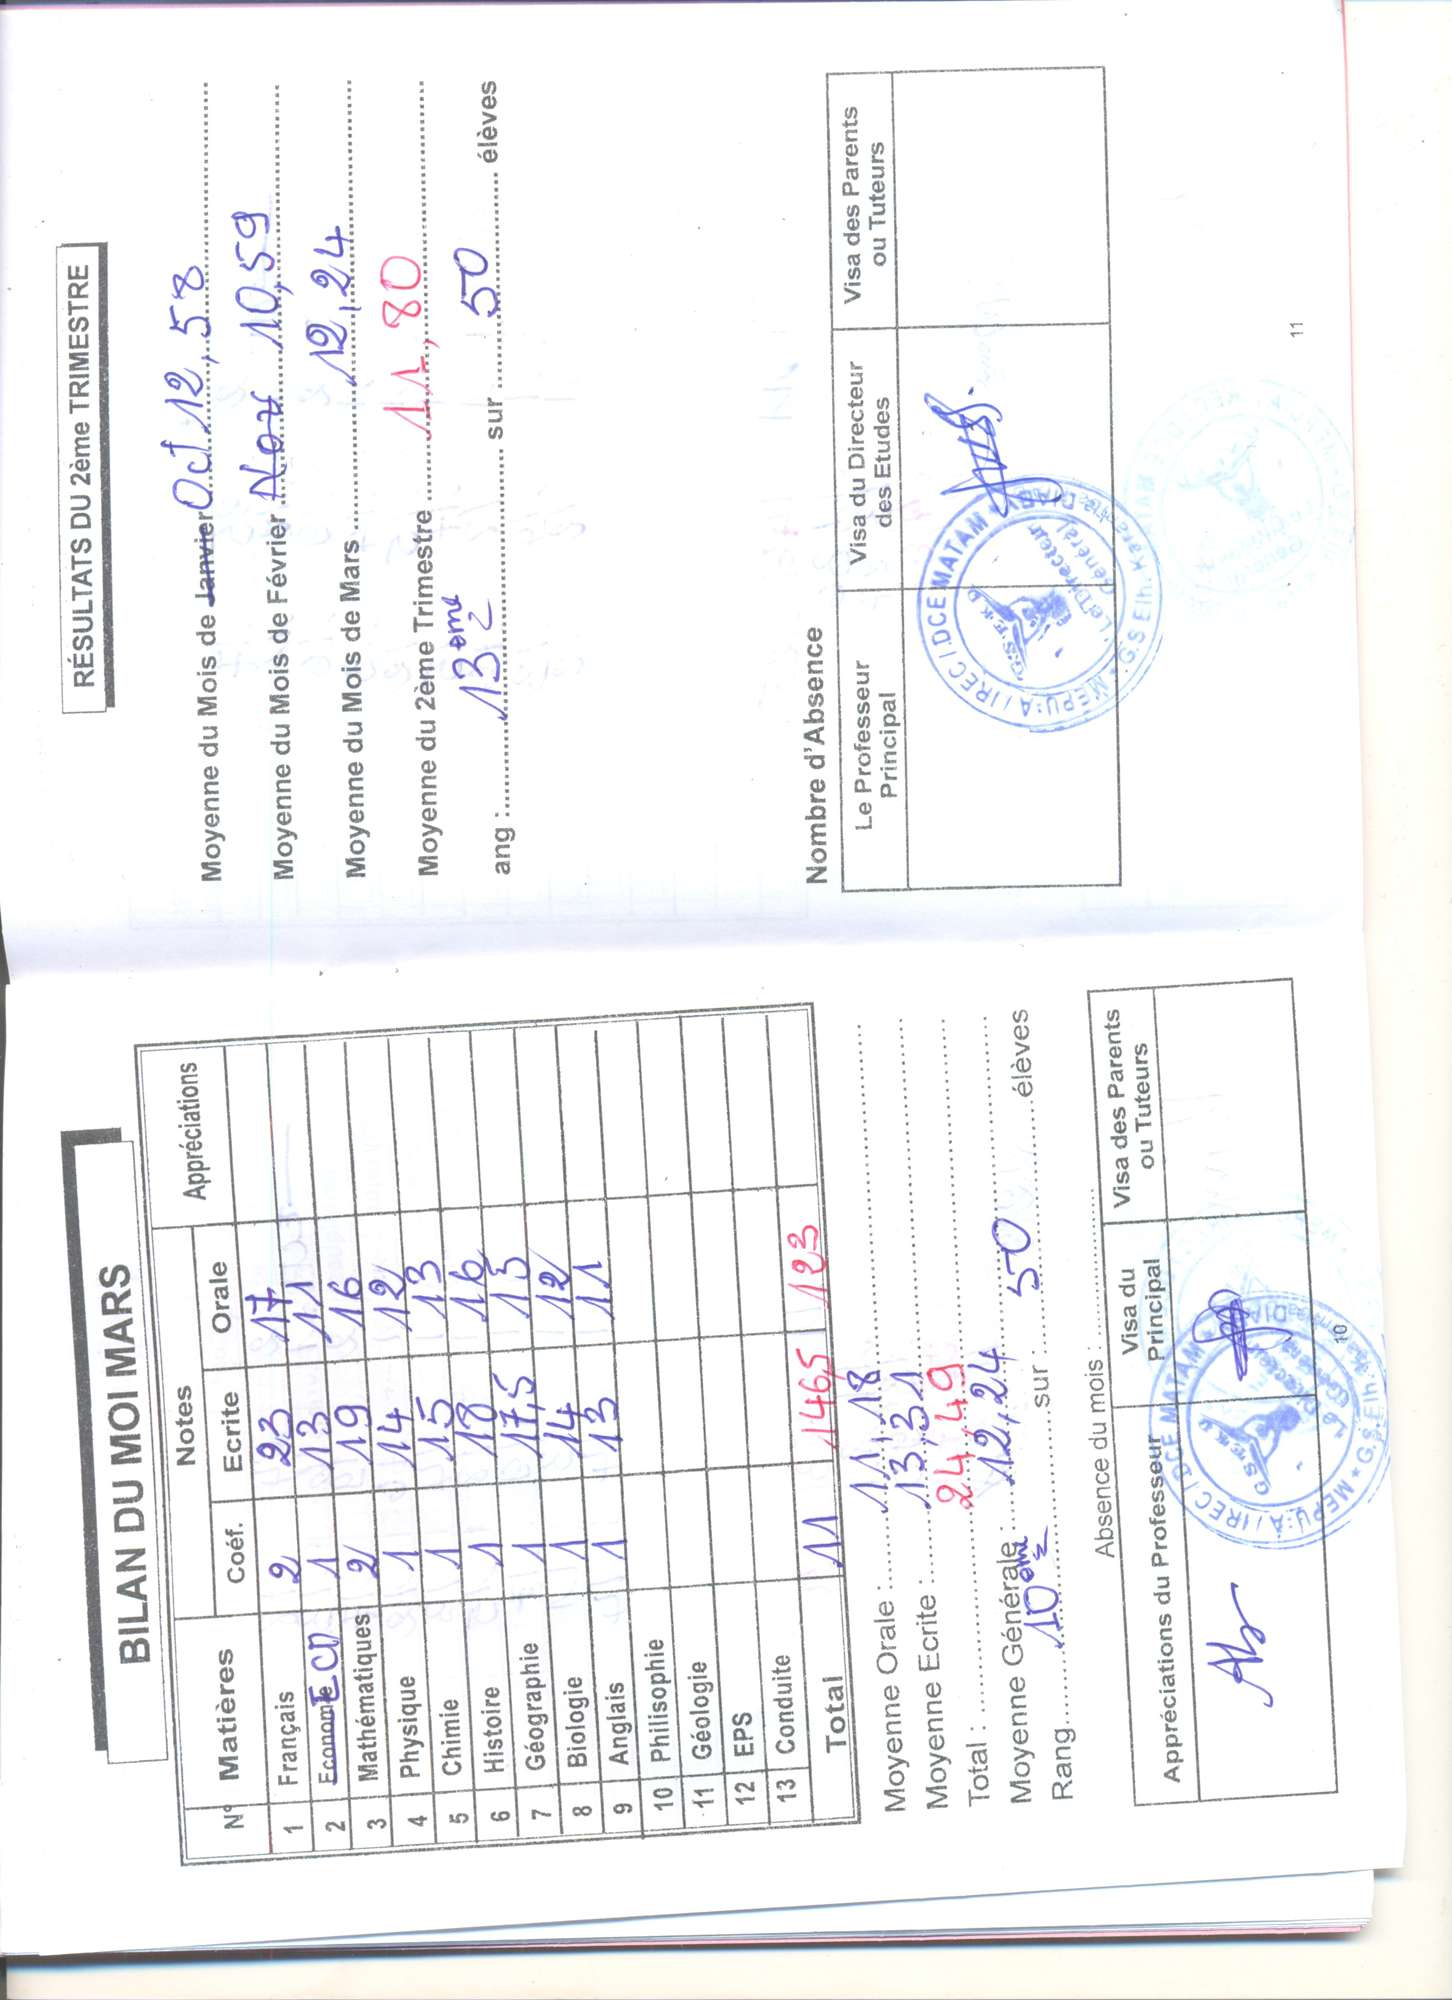 BILAN DU MOI MARS
N° Matières Notes Appréciations
Coéf. Ecrite Orale
1 Français 2 23 17
2 Econom̶i̶e̶ ECD 1 13 11
3 Mathématiques 2 19 16
4 Physique 1 14 12
5 Chimie 1 15 13
6 Histoire 1 18 16
7 Géographie 1 17,5 15
8 Biologie 1 14 12
9 Anglais 1 13 11
10 Philisophie
11 Géologie
12 EPS
13 Conduite
Total 11 146,5 123
Moyenne Orale : 11,18
Moyenne Ecrite : 13,31
Total : 24,49
Moyenne Générale : 12,24
Rang 10ème sur : 50 élèves
Absence du mois :
Appréciations du Professeur Visa du Principal Visa des Parents ou Tuteurs
MEPU.A / IREC / DCE MATAM
Le Directeur Général
10
RÉSULTATS DU 2ème TRIMESTRE
Moyenne du Mois de Janvier Oct 12,58
Moyenne du Mois de Février Nov 10,59
Moyenne du Mois de Mars 12,24
Moyenne du 2ème Trimestre 11,80
ang : 13ème sur 50 élèves
Nombre d'Absence
Le Professeur Principal Visa du Directeur des Etudes Visa des Parents ou Tuteurs
MEPU.A / IREC / DCE MATAM
G.S.E.K.D
Le Directeur Général
G.S Elh. Karamba DIABY
11